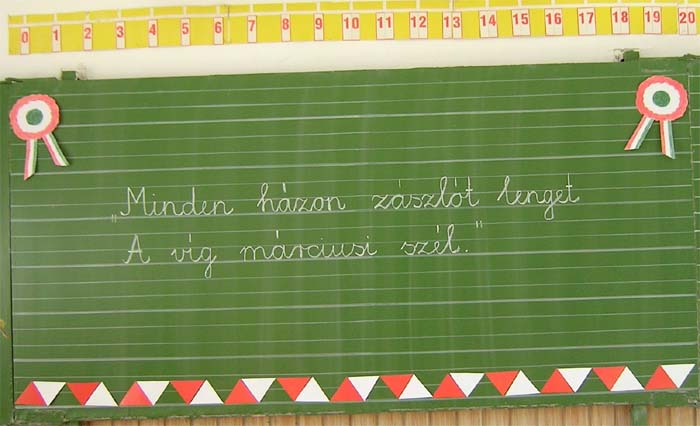 0 1 2 3 4 5 6 7 8 9 10 11 12 13 14 15 16 17 18 19 20
„Minden házon zászlót lenget
A víg márciusi szél."